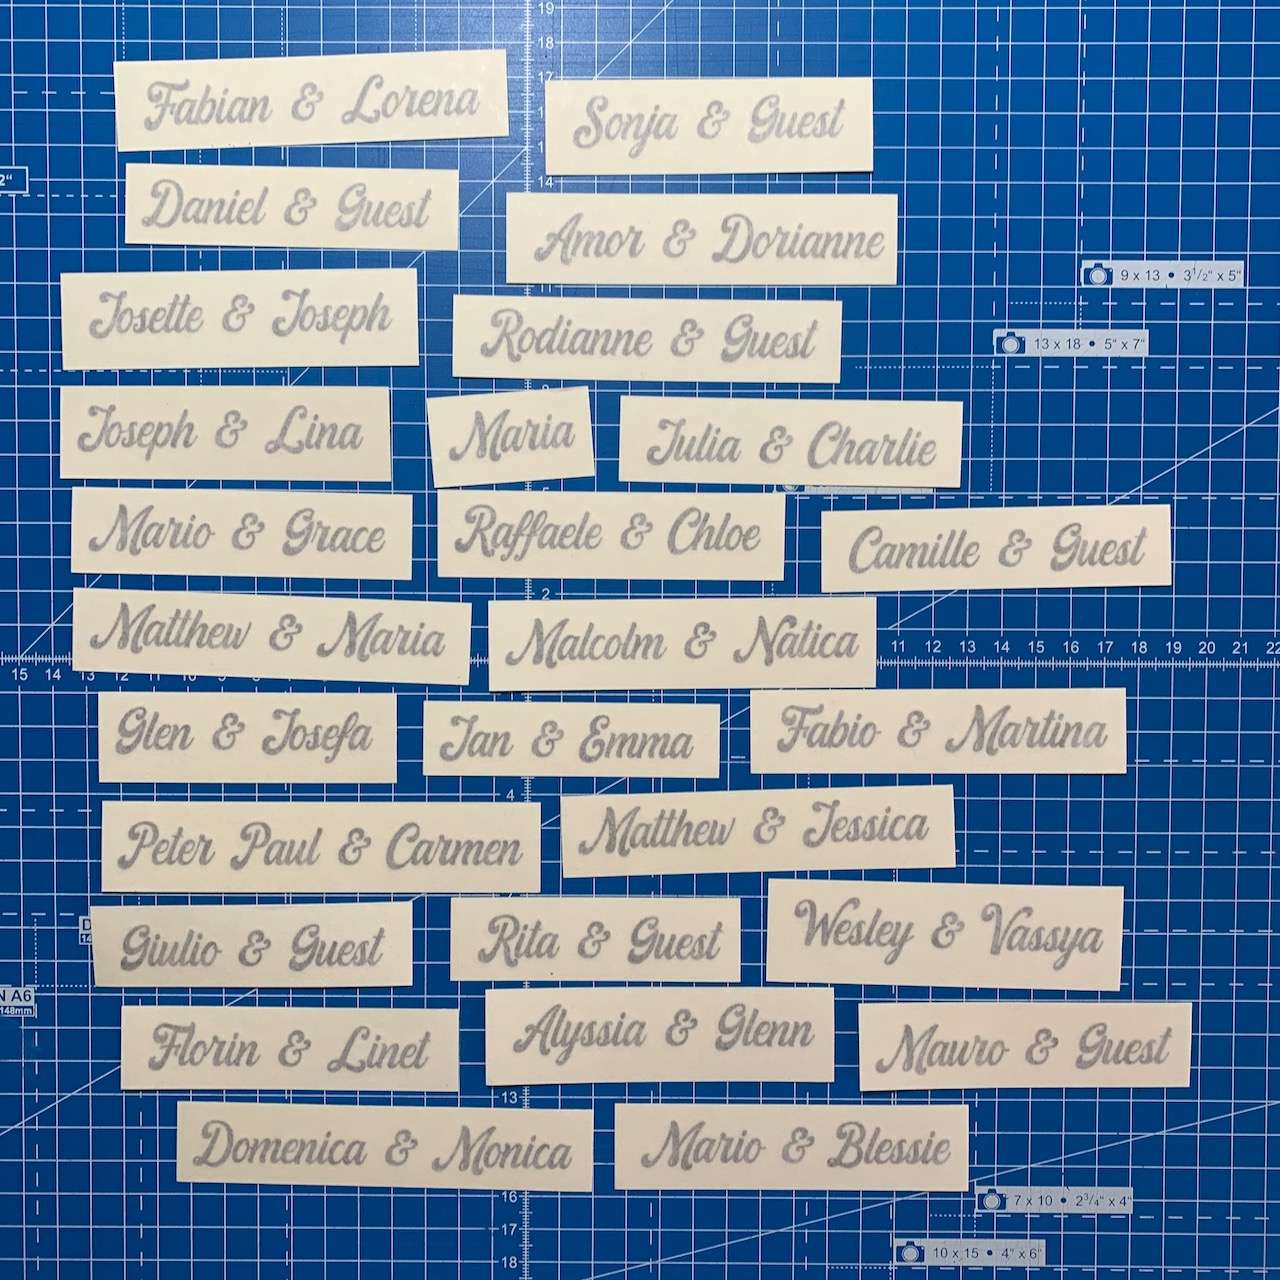 19
18
17
Fabian & Lorena
Sonja & Guest
14
2"
Daniel & Guest
Amor & Dorianne
9 x 13 • 3 1/2" x 5"
Josette & Joseph
Rodianne & Guest
13 x 18 • 5" x 7"
Joseph & Lina
Maria
Julia & Charlie
Mario & Grace
Raffaele & Chloe
Camille & Guest
2
Matthew & Maria
Malcolm & Natica
11 12 13 14 15 16 17 18 19 20 21 22
15 14 13 12 11 10 9 8
Glen & Josefa
Jan & Emma
Fabio & Martina
4
Peter Paul & Carmen
Matthew & Jessica
Giulio & Guest
Rita & Guest
Wesley & Vassya
N A6
148mm
Florin & Linet
Alyssia & Glenn
Mauro & Guest
13
Domenica & Monica
Mario & Blessie
16
7 x 10 • 2 3/4" x 4"
17
10 x 15 • 4" x 6"
18